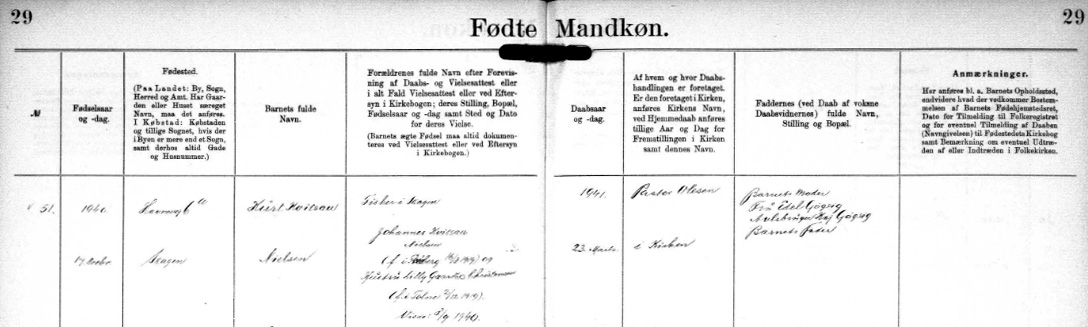 29
Fødte Mandkøn.
29
№
Fødselsaar
og -dag.
Fødested.
(Paa Landet: By, Sogn,
Herred og Amt. Har Gaar-
den eller Huset særeget
Navn, maa det anføres.
I Købstad: Købstaden
og tillige Sognet, hvis der
i Byen er mere end et Sogn,
samt derhos altid Gade
og Husnummer.)
Barnets fulde
Navn.
Forældrenes fulde Navn efter Forevis-
ning af Daabs- og Vielsesattest eller
i alt Fald Vielsesattest eller ved Efter-
syn i Kirkebogen; deres Stilling, Bopæl,
Fødselsaar og -dag samt Sted og Dato
for deres Vielse.
(Barnets ægte Fødsel maa altid dokumen-
teres ved Vielsesattest eller ved Eftersyn
i Kirkebogen.)
Daabsaar
og -dag.
Af hvem og hvor Daabs-
handlingen er foretaget.
Er den foretaget i Kirken,
anføres Kirkens Navn,
ved Hjemmedaab anføres
tillige Aar og Dag for
Fremstillingen i Kirken
samt dennes Navn.
Fadderne (ved Daab af voksne
Daabsvidnernes) fulde Navn,
Stilling og Bopæl.
Anmærkninger.
Her anføres bl. a. Barnets Opholdssted,
endvidere hvad der vedkommer Bestem-
melsen af Barnets Fødehjemstedsret,
Dato for Tilmelding til Folkeregistret
og for eventuel Tilmelding af Daaben
(Navngivelsen) til Fødestedets Kirkebog
samt Bemærkning om eventuel Udtræ-
den af eller Indtræden i Folkekirken.
51.
1940
Skagen
Nielsen
Fisker i Skagen
Johannes
Nielsen
1940.
1941
23 Marts
Pastor Olesen
i Kirken
Barnets Moder
Fru Edel
Barnets Fader